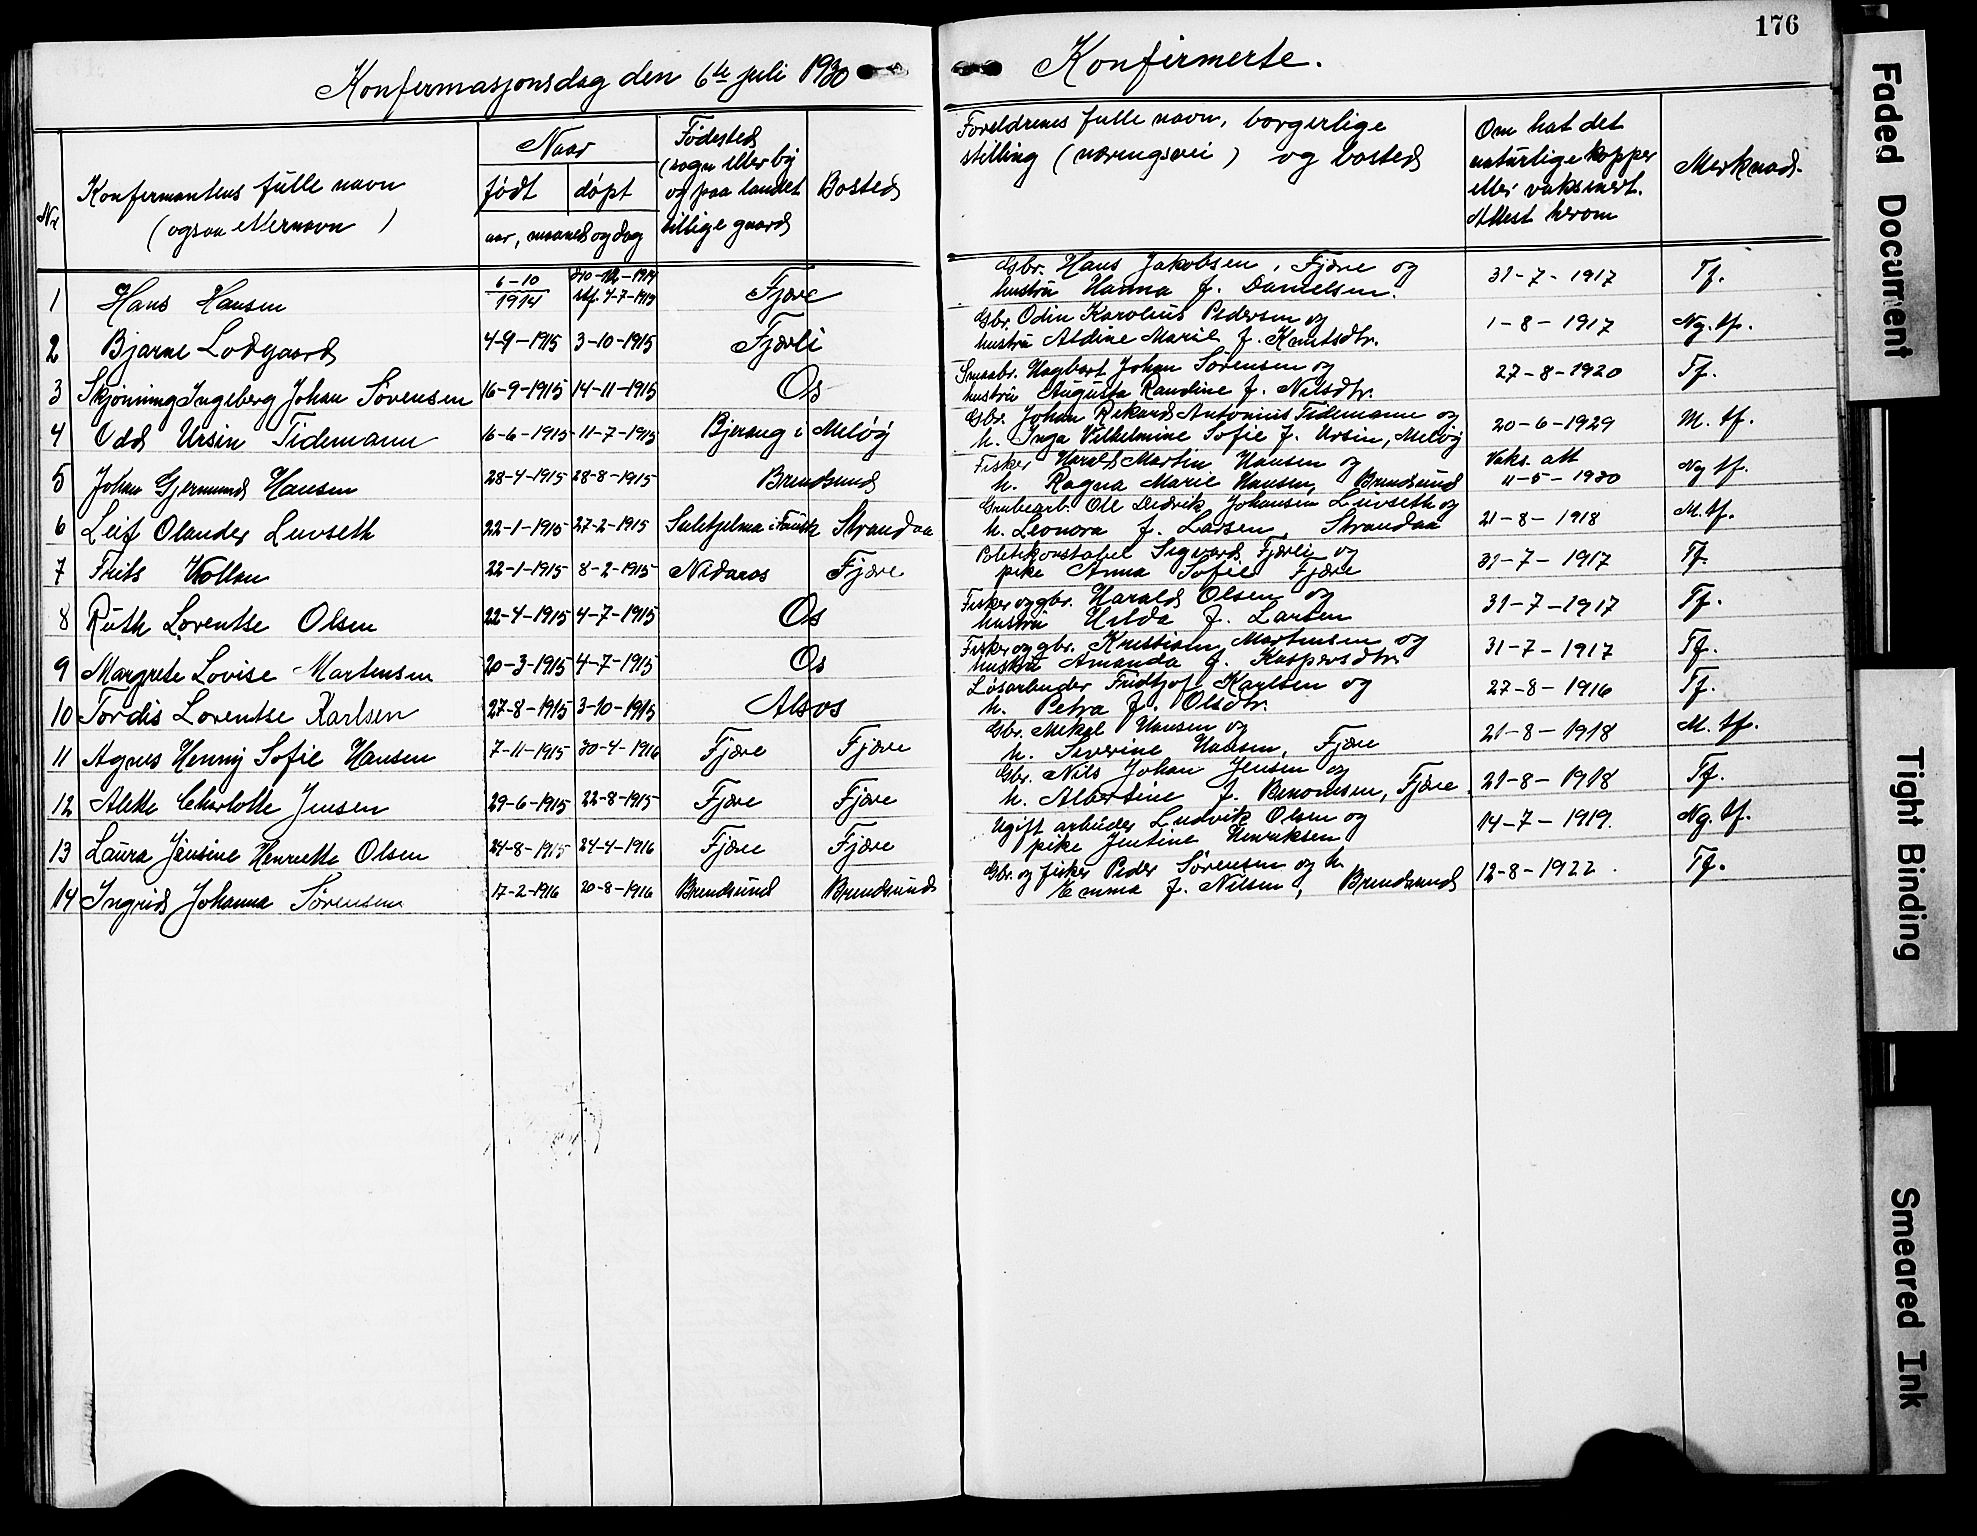 176
Konfermasjonsdag den 6te juli 1930
Konfirmerte.
Nr
Konfermantens fulle navn
(ogsaa Mernavn)
Naar
født
døpt
aar, maaned og dag
Fødested
(sogn eller by
og paa landet
tillige gaard
Bosted
Foreldrenes fulle navn, borgerlige
stilling (næringsvei) og bosted
Om hat det
naturlige kopper
eller vaksinert.
Attest herom
Merknad.
1 Hans Hansen 6-10 1914 stf. 4-7-1919 Fjære
Gbr. Hans Jakobsen, Fjære og
hustru Hanna f. Danielsen. 31-7-1917 Tf.
2 Bjarne Lodgaard 4-9-1915 3-10-1915 Fjærli
Gbr. Odin Karolius Pedersen og
hustru Aldine Marie f. Knutsdtr. 1-8-1917 Ng. tf.
3 Skjønning Ingeberg Johan Sørensen 16-9-1915 14-11-1915 Os
Smaabr. Hagbart Johan Sørensen og
hustru Augusta Randine f. Nilsdtr. 27-8-1920 Tf.
4 Odd Ursin Tidemann 16-6-1915 11-7-1915 Bjerang i Meløy
Gbr. Johan Rikard Antonius Tidemann og
h. Inga Vilhelmine Sofie f. Ursin, Meløy 20-6-1929 M. tf.
5 Johan Gjermund Hansen 28-4-1915 28-8-1915 Brendsund
Fisker Harald Martin Hansen og
h. Ragna Marie Hansen, Brendsund Vaks. att 11-5-1930 Ng tf.
6 Leif Olander Luvseth 22-1-1915 27-2-1915 Sulitjelma i Fausk Strandaa
Grubearb. Ole Dedvik Johansen Luvseth og
h. Leonora f. Larsen Strandaa 21-8-1918 M. tf.
7 Frits Wollan 22-1-1915 8-2-1915 Nidaros Fjære
Politikonstabel Sigvard Fjærli og
pike Anna Sofie Fjære 31-7-1917 Tf.
8 Ruth Lorentse Olsen 22-4-1915 4-7-1915 Os
Fisker og gbr. Harald Olsen og
hustru Hilda f. Larsen 31-7-1917 Tf.
9 Margrete Lovise Martensen 20-3-1915 4-7-1915 Os
Fisker og gbr. Kristian Martensen og
hustru Amanda f. Kaspersdtr 31-7-1917 Tf.
10 Tordis Lorentse Karlsen 27-8-1915 3-10-1915 Alsos
Løsarbeider Fridtjof Karlsen og
h. Petra f. Olsdtr. 27-8-1916 Tf.
11 Agnes Henny Sofie Hansen 7-11-1915 30-4-1916 Fjære Fjære
Gbr. Mikal Hansen og
h. Severine Hansen, Fjære 21-8-1918 M. tf.
12 Alette Charlotte Jensen 29-6-1915 22-8-1915 Fjære Fjære
Gbr. Nils Johan Jensen og
h. Albertine f. Benonisen, Fjære. 21-8-1918 Tf.
13 Laura Jensine Henriette Olsen 24-8-1915 24-4-1916 Fjære Fjære
Ugift arbeider Ludvik Olsen og
pike Jentine Henriksen 14-7-1919. Ng. tf.
14 Ingrid Johanna Sørensen 17-2-1916 20-8-1916 Brendsund Brendsund
Gbr. og fisker Peder Sørensen og h.
Emma f. Nilsen, Brendsund 12-8-1922. Tf.
Faded Document
Tight Binding
Smeared Ink